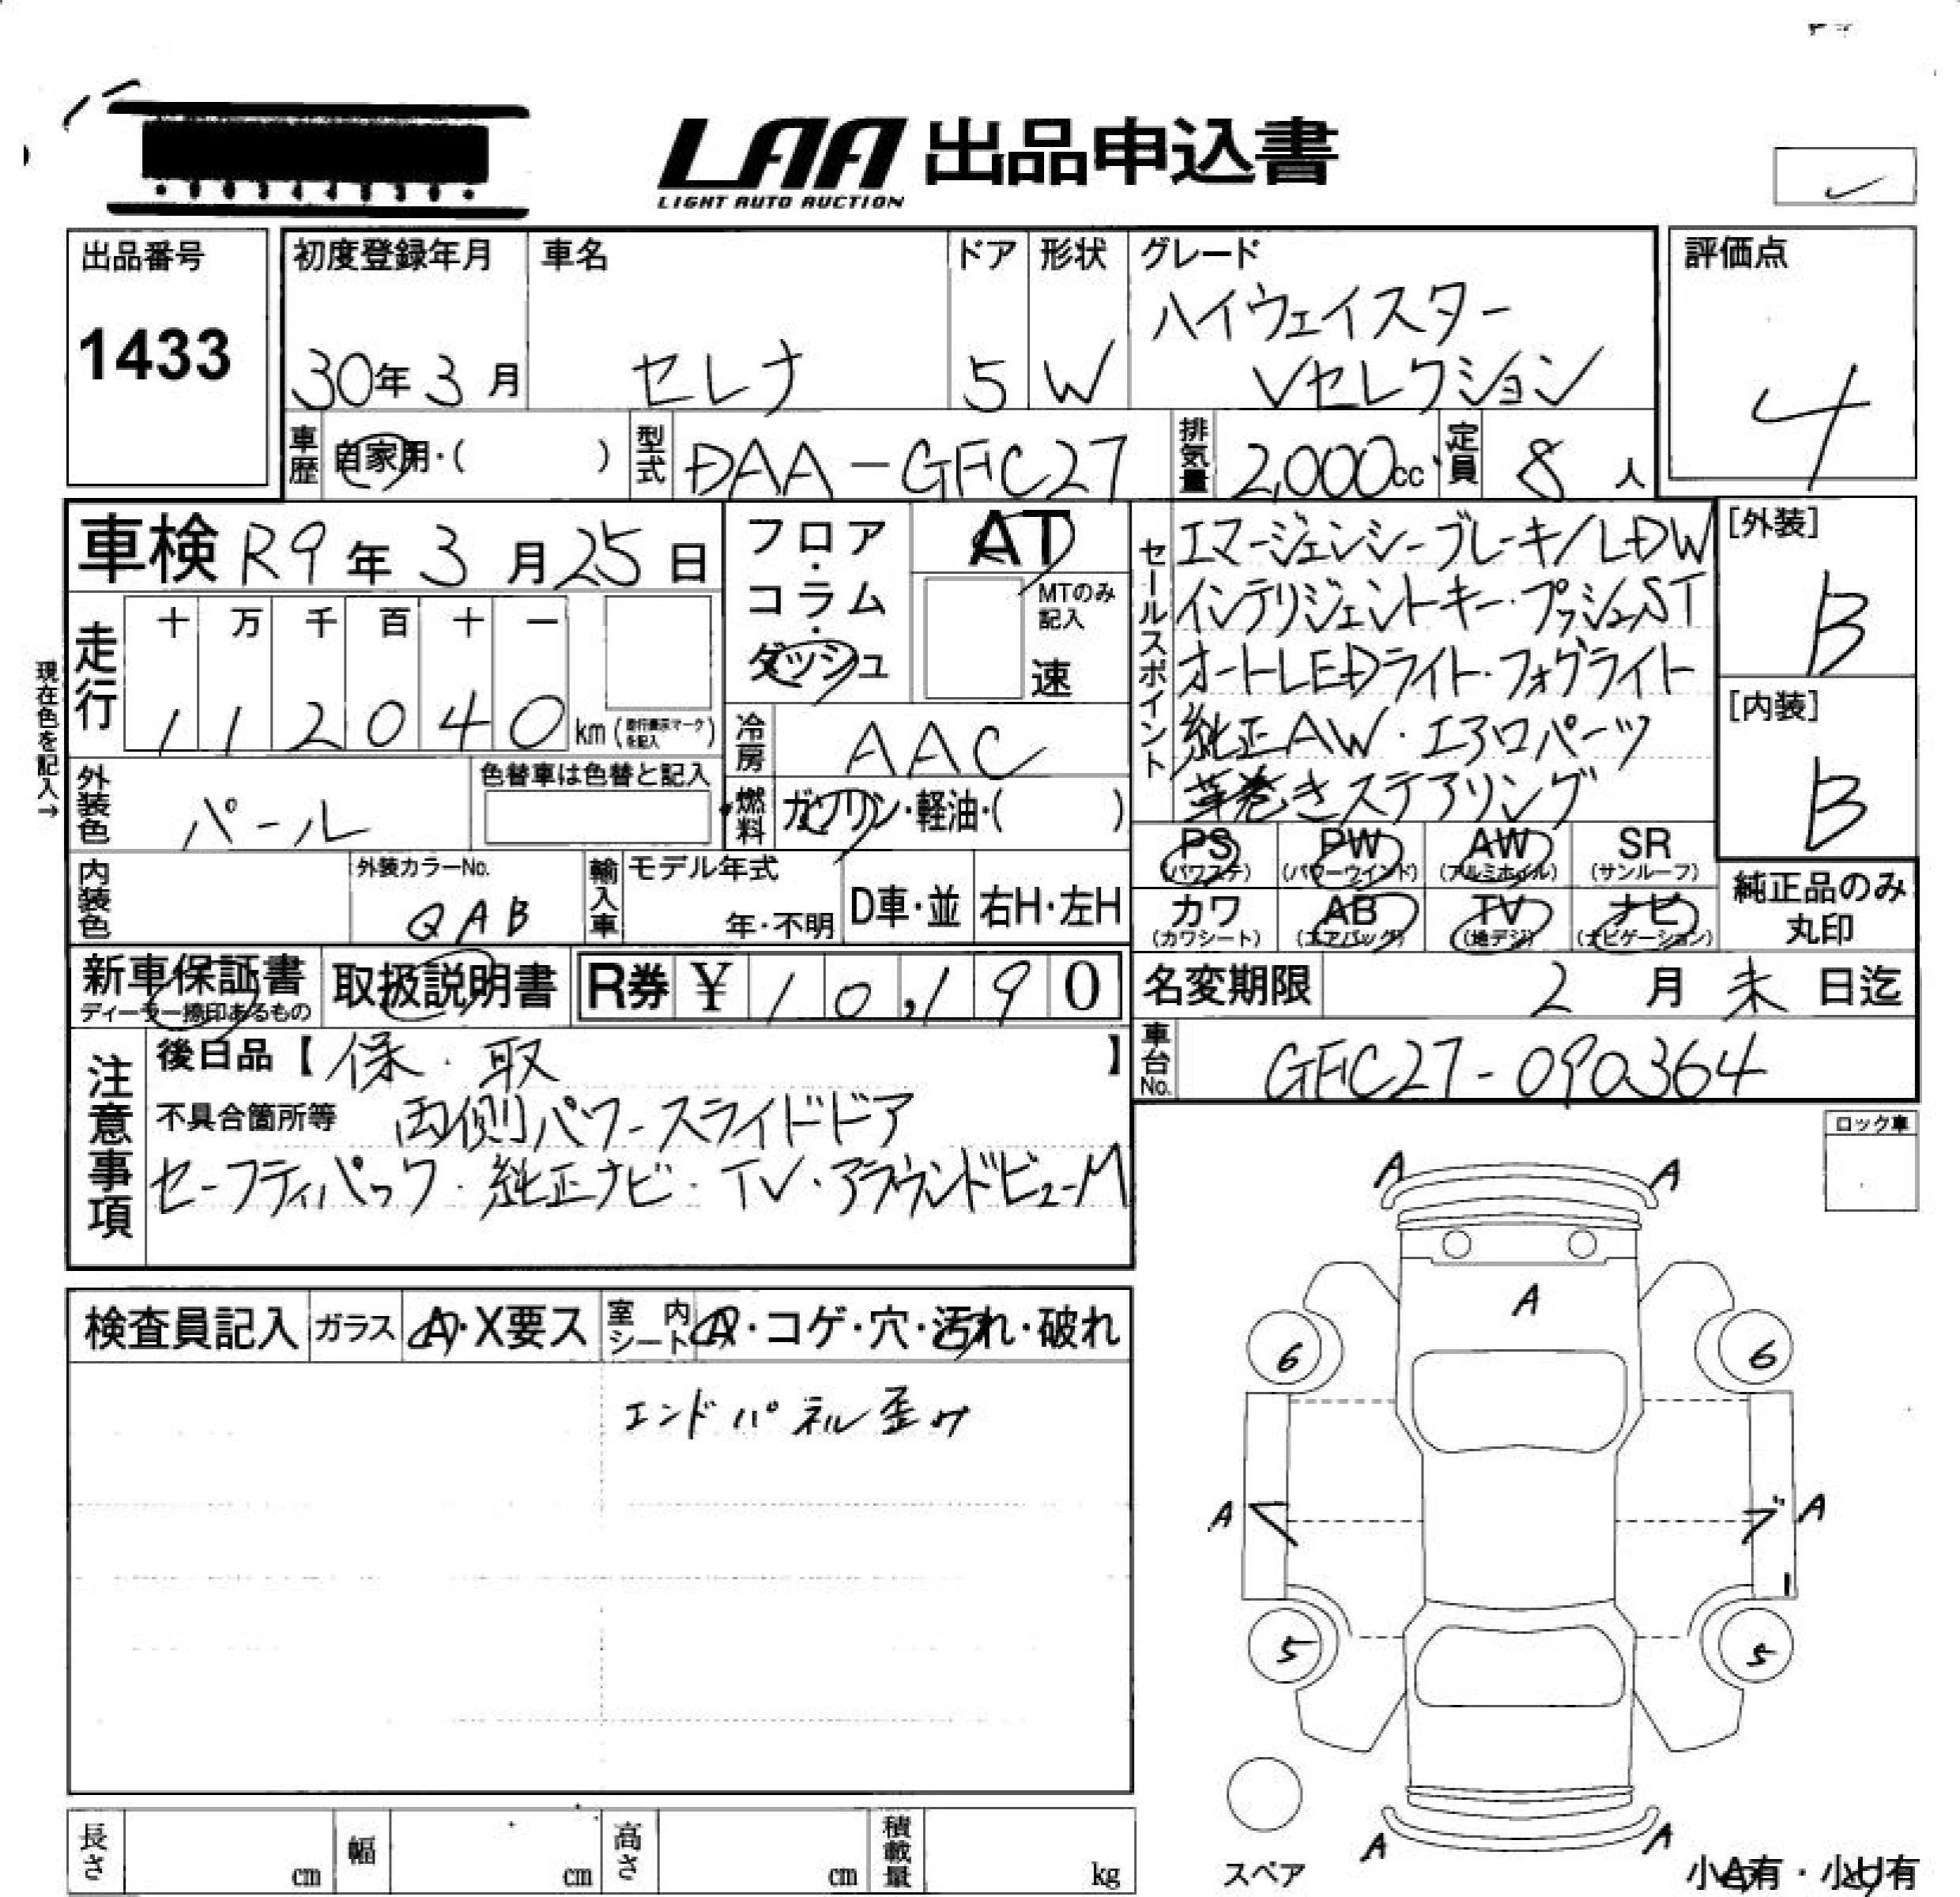 LAA 出品申込書
LIGHT AUTO AUCTION
出品番号
1433
初度登録年月
30年3月
車名
セレナ
ドア
5
形状
W
グレード
ハイウェイスター
Vセレクション
評価点
4
車歴
自家用・( )
型式
DAA-GFC27
排気量
2,000cc
定員
8人
車検 R9年3月25日
フロア・コラム・ダッシュ
AT
MTのみ記入
速
走行
十 万 千 百 十 一
1 1 2 0 4 0 km
現在色を記入→
冷房
AAC
外装色
パール
色替車は色替と記入
燃料
ガソリン・軽油・( )
内装色
外装カラーNo.
QAB
輸入車
モデル年式
年・不明
D車・並
右H・左H
セールスポイント
エマージェンシーブレーキ/LDW
インテリジェントキー・プッシュST
オートLEDライト・フォグライト
純正AW・エアロパーツ
革巻きステアリング
[外装]
B
[内装]
B
PS (パワステ)
PW (パワーウインド)
AW (アルミホイル)
SR (サンルーフ)
カワ (カワシート)
AB (エアバッグ)
TV (地デジ)
ナビ (ナビゲーション)
純正品のみ
丸印
新車保証書
ディーラー捺印あるもの
取扱説明書
R券 ¥10,190
名変期限 2月末日迄
車台No.
GFC27-090364
注意事項
後日品【保・取】
不具合箇所等 両側パワースライドドア
セーフティパック・純正ナビ・TV・アラウンドビューM
ロック車
検査員記入
ガラス
A・X要ス
室内シート
・コゲ・穴・汚れ・破れ
エンドパネル歪み
A A
A
6 6
A A
1
5 5
A A
スペア
小A有・小U有
長さ cm
幅 cm
高さ cm
積載量 kg